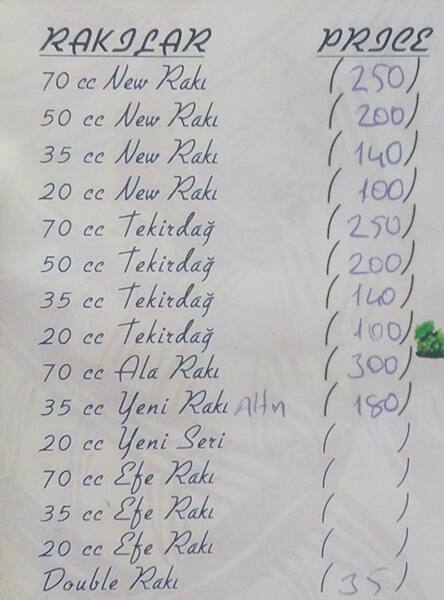 RAKILAR PRICE
70 cc New Rakı (250)
50 cc New Rakı (200)
35 cc New Rakı (140)
20 cc New Rakı (100)
70 cc Tekirdağ (250)
50 cc Tekirdağ (200)
35 cc Tekirdağ (140)
20 cc Tekirdağ (100)
70 cc Ala Rakı (300)
35 cc Yeni Rakı Altın (180)
20 cc Yeni Seri ( )
70 cc Efe Rakı ( )
35 cc Efe Rakı ( )
20 cc Efe Rakı ( )
Double Rakı (35)